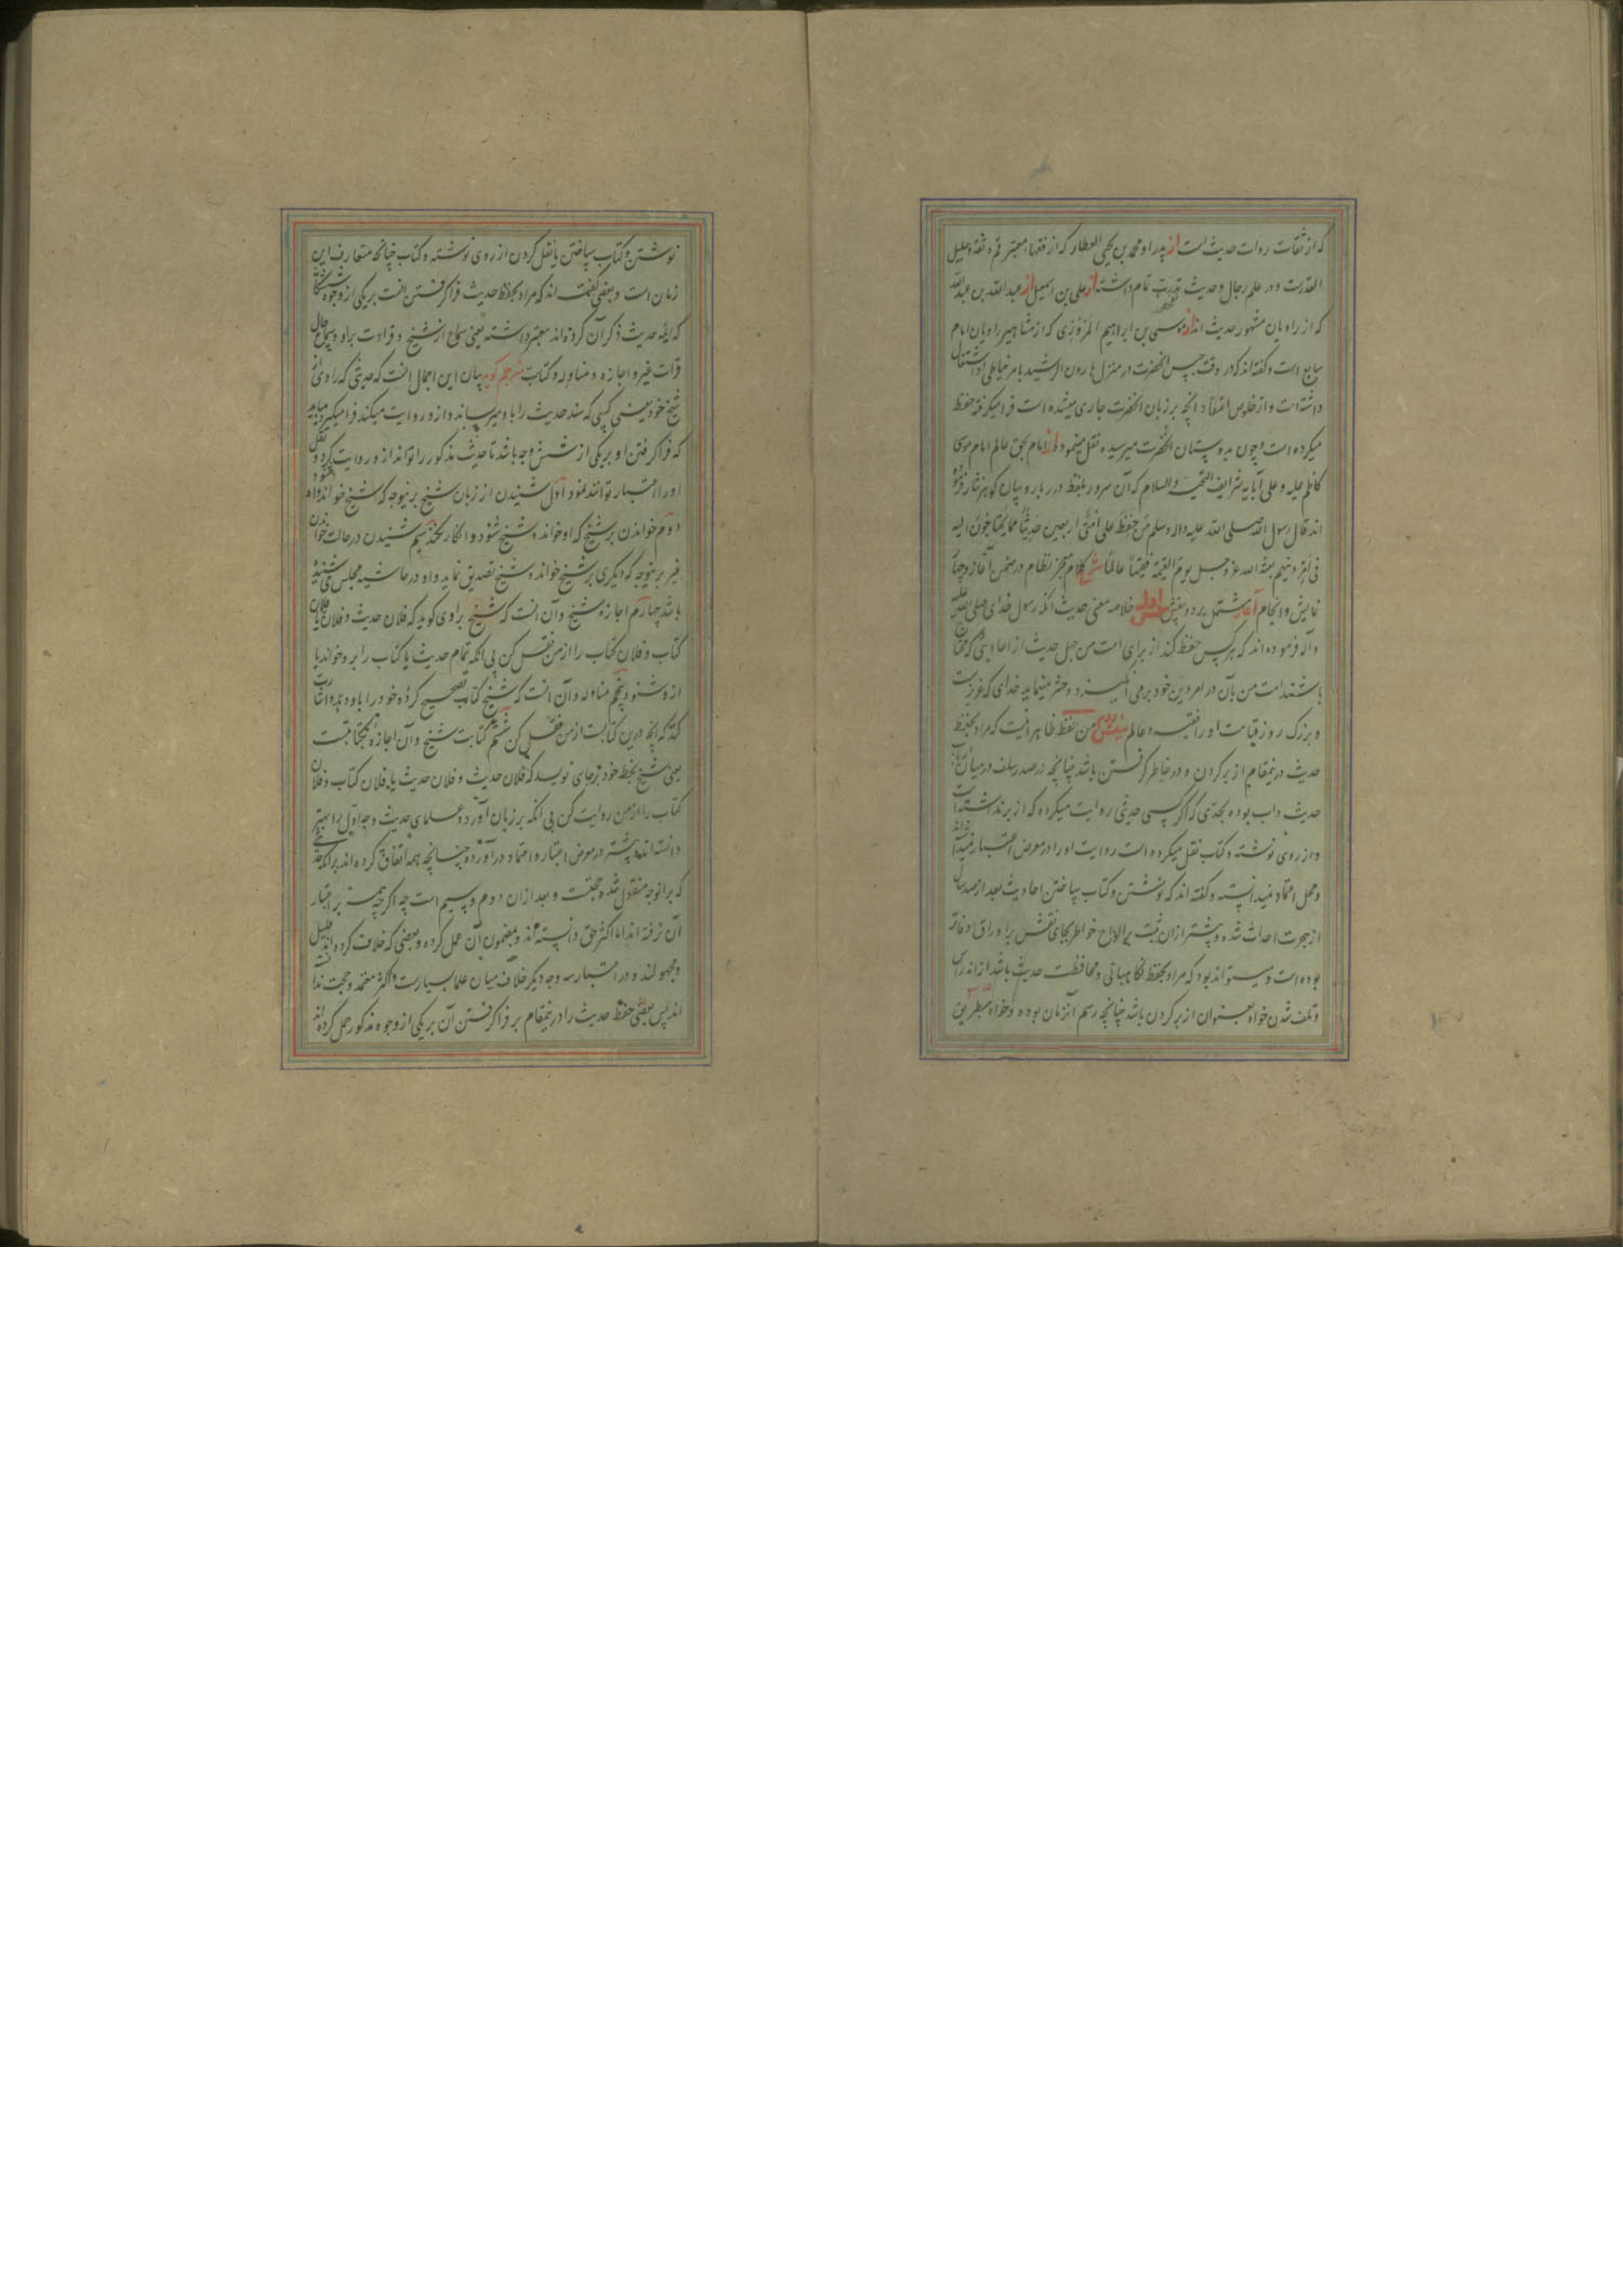 که از ثقات روات حدیث است از پدر او محمد بن یحیی العطار که از فقهاء معتبر قم و ثقه و جلیل
القدرست و در علم رجال و حدیث تمام داشته از علی بن اسمعیل از عبد الله بن عبد الله
که از راویان مشهور حدیث اند از موسی بن ابراهیم المروزی که از مشاهیر راویان امام
سابع است و گفته اند که در وقت حبس انحضرت در منزل هارون الرشید بامر اشتغال
داشته است و از خلوص اعتقاد انچه بر زبان انحضرت جاری میشده است فرا میگرفته حفظ
میکرده است و چون بدوستان انحضرت میرسیده نقل مینموده از امام بحق عالم امام موسی
کاظم علیه و علی آبایه شرایف التحیة والسلام که آن سرور بلفظ درر بار و بیان گوهر نثار فرموده
اند قال رسول الله صلی الله علیه واله وسلم من حفظ علی امتی اربعین حدیثا مما یحتاجون الیه
فی امر دینهم بعثه الله عز و جل یوم القیمة فقیها عالما شرح کلام معجز نظام در ضمن آغاز و
نمایش و انجام آغاز مشتمل بر دو بینش اول خلاصه معنی حدیث انکه رسول خدای صلی الله علیه
وآله فرموده اند که هر کس حفظ کند از برای امت من چهل حدیث از احادیثی که محتاج
باشند امت من بآن در امر دین خود بر می انگیزد و حشر مینماید خدای که عزیزست
و بزرگ روز قیامت او را فقیه و عالم بینش دوم من حفظ ظاهر انست که مراد بحفظ
حدیث درینمقام از بر کردن و در خاطر گرفتن باشد چنانچه در صدر سلف در میان
حدیث داب بوده بحدی که اگر کسی حدیثی روایت میکرده که از بر نداشته است
و از روی نوشته و کتاب نقل میکرده است روایت او را در معرض اعتبار نمیداشته اند
و محل اعتماد نمیدانسته و گفته اند که نوشتن و کتاب ساختن احادیث بعد از صد سال
از هجرت احداث شده و پیشتر از ان ثبت بر الواح خواطر بجای نقش بر اوراق دفاتر
بوده است و میتواند بود که مراد بحفظ نگاهبانی و محافظت حدیث باشد از اندراس
و تلف شدن خواه بعنوان از بر کردن باشد چنانچه رسم آنزمان بوده و خواه بطریق
نوشتن و کتاب ساختن یا نقل کردن از روی نوشته و کتاب چنانچه متعارف این
زمان است و بعضی گفته اند که مراد بحفظ حدیث فرا گرفتن انست بر یکی از وجوه ششگانه
که ائمه حدیث ذکر آن کرده اند معتبر داشته یعنی سماع از شیخ و قراءت بر او و سماع حال
قرات غیر و اجازه و مناوله و کتابت مترجم گوید بیان این اجمال انست که حدیثی که راوی از
شیخ خود یعنی کسی که سند حدیث را باو میرساند و از و روایت میکند فرا میگیرد میباید
که فرا گرفتن او بر یکی از شش وجه باشد تا حدیث مذکور را تواند از و روایت کرد و نقل
او را اعتبار توانند نمود اول شنیدن از زبان شیخ برینوجه که شیخ خواند و او شنود
دوم خواندن بر شیخ که او خواند و شیخ شنود و انکار نکند سیم شنیدن در حالت خواندن
غیر برینوجه که دیگری بر شیخ خواند و شیخ تصدیق نماید و او در حاشیه مجلس می شنیده
باشد چهارم اجازه شیخ و آن انست که شیخ براوی گوید که فلان حدیث و فلان یا فلان
کتاب و فلان کتاب را از من نقل کن بی انکه تمام حدیث یا کتاب را بر و خواند یا
از و شنود پنجم مناوله و آن انست که شیخ کتاب تصحیح کرده خود را باو دهد و اشارت
کند که انچه درین کتابست از من نقل کن ششم کتابت شیخ و آن اجازه بکتابتست
یعنی شیخ بخط خود بجای نویسد که فلان حدیث و فلان حدیث یا فلان کتاب و فلان
کتاب را از من روایت کن بی انکه بر زبان آورد و علمای حدیث وجه اول را بهتر
دانسته اند و بیشتر در معرض اعتبار و اعتماد در آورده چنانچه همه اتفاق کرده اند بر انکه حدیثی
که برانوجه منقول شده حجتست و بعد از ان دوم و سیم است چه اگر چه همه بر اعتبار
آن نرفته اند اما اکثر حق دانسته اند و بمضمون آن عمل کرده و بعضی که خلاف کرده اند قلیل
و مجهولند و در اعتبار سه وجه دیگر خلاف میان علما بسیارست و اکثر معتمد و حجت ندانسته
اند پس بعضی حفظ حدیث را درینمقام بر فرا گرفتن آن بر یکی از وجوه مذکور حمل کرده اند